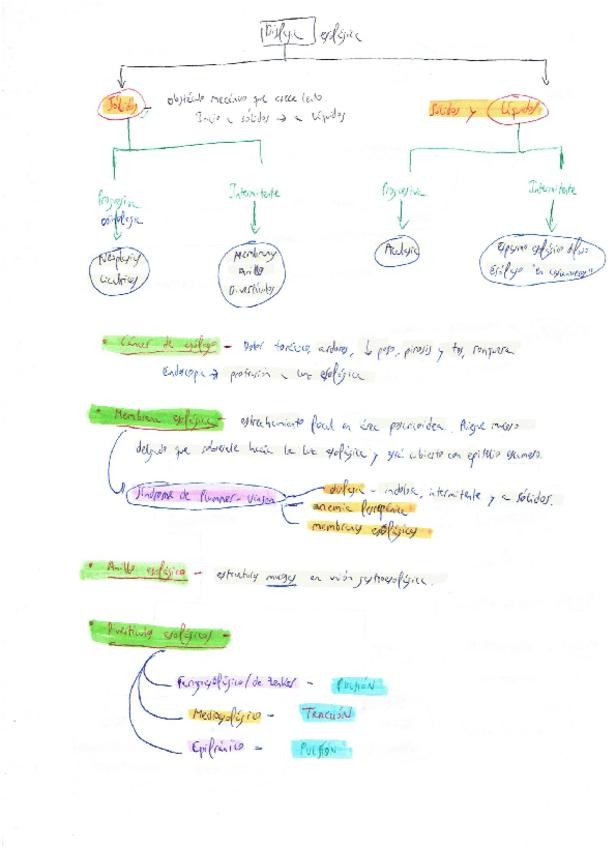 Disfagia esofágica
Sólidos - Obstáculo mecánico que crece lento.
Inicio a sólidos → a líquidos
Sólidos y Líquidos
Progresiva
Intermitente
Progresiva
Intermitente
Neoplasias
Membranas
Anillo
Divertículos
Acalasia
Espasmo esofágico difuso
Esófago "en
• Cáncer de esófago - Dolor torácico, ardores, ↓ peso, pirosis y tos, ronquera
Endoscopia → protrusión a luz esofágica
• Membrana esofágica - estrechamiento focal en área poscricoidea. Pliegue mucoso
delgado que sobresale hacia la luz esofágica y está cubierto con epitelio escamoso.
Síndrome de Plummer-Vinson
disfagia - indolora, intermitente y a sólidos.
anemia ferropénica
membranas esofágicas
• Anillo esofágico - estructura mucosa en unión gastroesofágica.
• Divertículos esofágicos -
Faringoesofágico/de Zenker - PULSIÓN
Medioesofágico - TRACCIÓN
Epifrénico - PULSIÓN